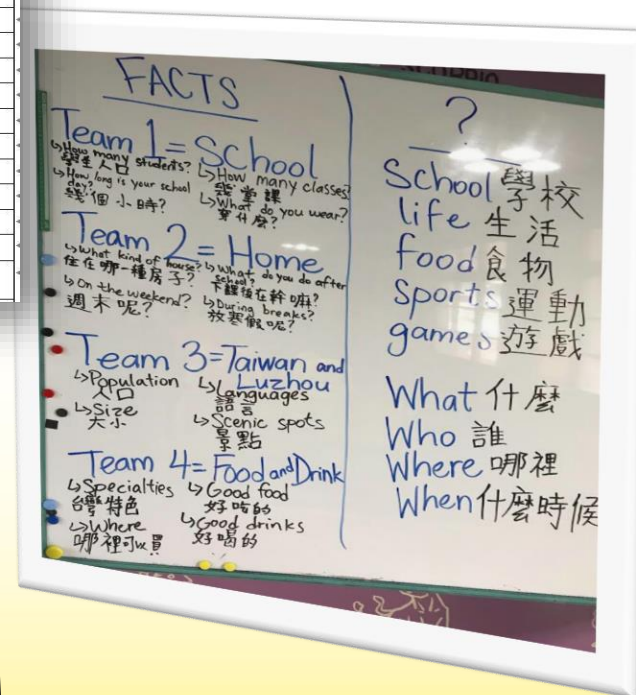 FACTS
Team 1 = School
↳How many students?
學生人口
↳How long is your school day?
幾個小時?
↳How many classes?
幾堂課
↳What do you wear?
穿什麼?
Team 2 = Home
↳What kind of house?
住在哪一種房子?
↳On the weekend?
週末呢?
↳What do you do after school?
下課後在幹嘛?
↳During breaks?
放寒假呢?
Team 3=Taiwan and Luzhou
↳Population
人口
↳Size
大小
↳Languages
語言
↳Scenic spots
景點
Team 4=Food and Drink
↳Specialties
台灣特色
↳Where
哪裡可以買
↳Good food
好吃的
↳Good drinks
好喝的
?
School 學校
life 生活
food 食物
Sports 運動
games 遊戲
What 什麼
Who 誰
Where 哪裡
When 什麼時候